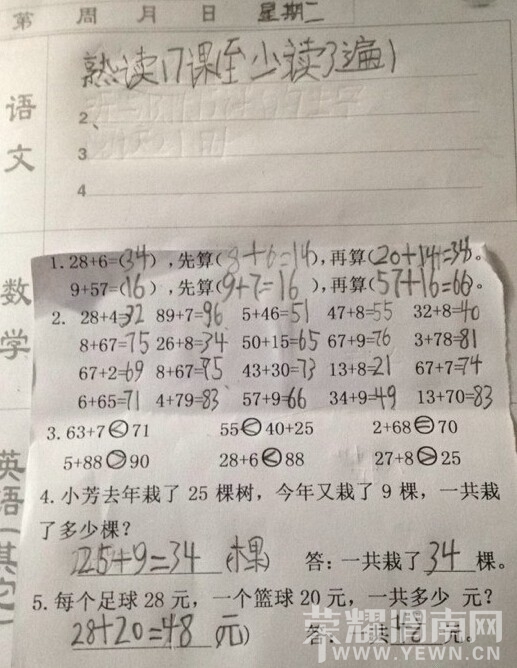 第 周 月 日 星期二
语文
熟读17课(至少读3遍)
2、
3
4
数学
1.28+6=(34),先算(8+6=14),再算(20+14=34)。
9+57=(16),先算(9+7=16),再算(57+16=66)。
2. 28+4=32 89+7=96 5+46=51 47+8=55 32+8=40
8+67=75 26+8=34 50+15=65 67+9=76 3+78=81
67+2=69 8+67=75 43+30=73 13+8=21 67+7=74
6+65=71 4+79=83 57+9=66 34+9=49 13+70=83
3. 63+7<71 55<40+25 2+68=70
5+88>90 28+6<88 27+8>25
英语(其它)
4.小芳去年栽了 25 棵树，今年又栽了 9 棵，一共栽
了多少棵？
25+9=34 (棵) 答：一共栽了34棵。
5.每个足球 28 元，一个篮球 20 元，一共多少 元？
28+20=48 (元) 答：一共 元。
荣耀渭南网
WWW.YEWN.CN